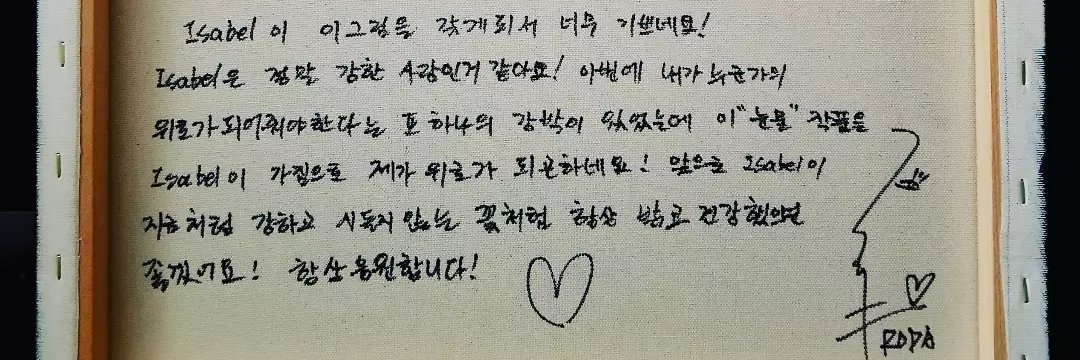 Isabel이 이그림을 갖게되서 너무 기쁘네요!
Isabel은 정말 강한 사람인거 같아요! 이번에 내가 누군가의
위로가 되어줘야한다는 또 하나의 강박이 있었는데 이 "눈물" 작품을
Isabel이 가짐으로 제가 위로가 되곤하네요! 앞으로 Isabel이
지금처럼 강하고 시들지 않는 꽃처럼 항상 밝고 건강했으면
좋겠어요! 항상 응원합니다!